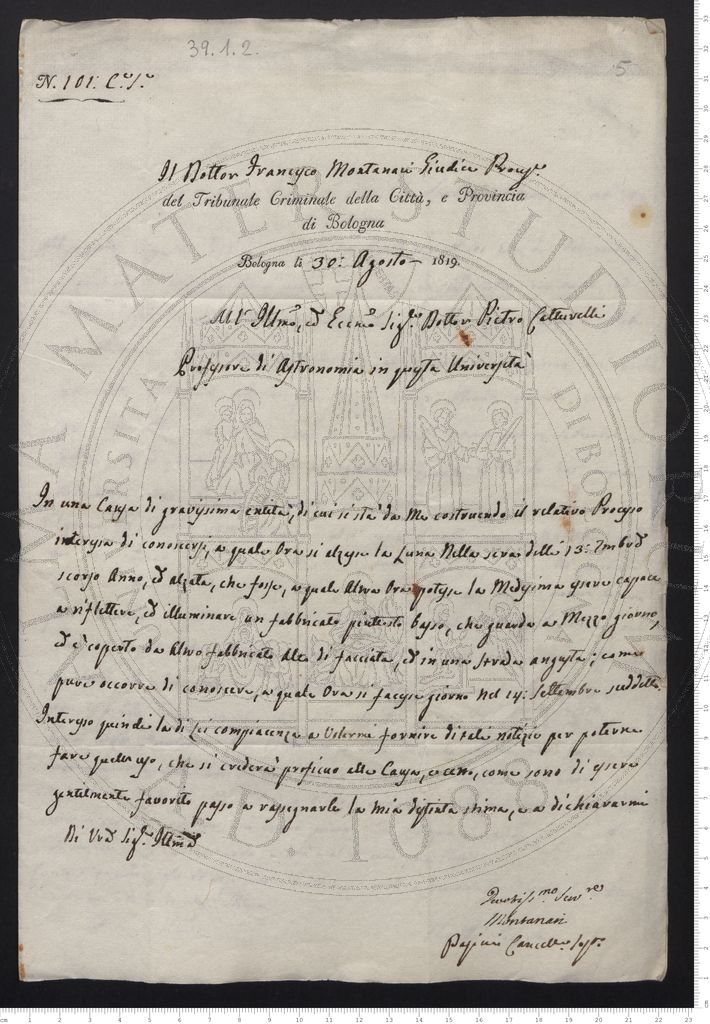 39.1.2.
5
N. 101. C.º S.º
Il Dottor Francesco Montanari Giudice Process.e
del Tribunale Criminale della Città, e Provincia
di Bologna
Bologna li 30: Agosto 1819.
All' Illmo, ed Eccmo Sig.r Dottor Pietro Catturelli
Professore di Astronomia in questa Università
In una Causa di gravissima entità, di cui si stà da Me costruendo il relativo Processo
interessa di conoscersi, a quale Ora si alzasse la Luna Nella sera delli 13: 7mbre
scorso Anno, ed alzata, che fosse, a quale Altra Ora potesse la Medesima essere capace
a riflettere, ed illuminare un fabbricato piutosto basso, che guarda a Mezzo giorno,
ed è coperto da Altro fabbricato Alto di facciata, ed in una strada angusta; come
pure occorre di conoscere, a quale Ora si facesse giorno Nel 14: Settembre suddetto.
Interesso quindi la di Lei compiacenza a Volermi fornire di tali notizie per poterne
fare quell' uso, che si crederà proficuo alla Causa, e certo, come sono di essere
gentilmente favorito passo a rassegnarle la mia distinta stima, e a dichiararmi
Di V.S. Sig.r Illma
Devotiss.mo Serv.re
Montanari
Pasini Cancell.e Sost.o
ALMA MATER STUDIORUM
UNIVERSITA DI BOLOGNA
A.D. 1088
cm 1 2 3 4 5 6 7 8 9 10 11 12 13 14 15 16 17 18 19 20 21 22 23